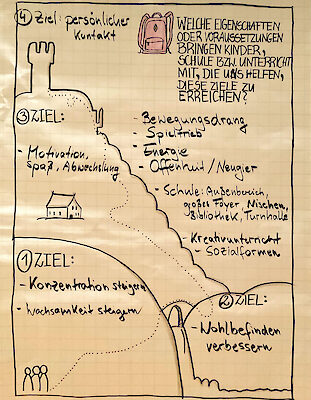 ④ Ziel: persönlicher
Kontakt
WELCHE EIGENSCHAFTEN
ODER VORAUSSETZUNGEN
BRINGEN KINDER,
SCHULE BZW. UNTERRICHT
MIT, DIE UNS HELFEN,
DIESE ZIELE ZU
ERREICHEN?
③ ZIEL:
- Motivation,
Spaß, Abwechslung
- Bewegungsdrang
- Spieltrieb
- Energie
- Offenheit / Neugier
- Schule: Außenbereich,
großes Foyer, Nischen,
Bibliothek, Turnhalle
- Kreativunterricht
- Sozialformen
① ZIEL:
- Konzentration steigern
- Wachsamkeit steigern
② ZIEL:
- Wohlbefinden
verbessern